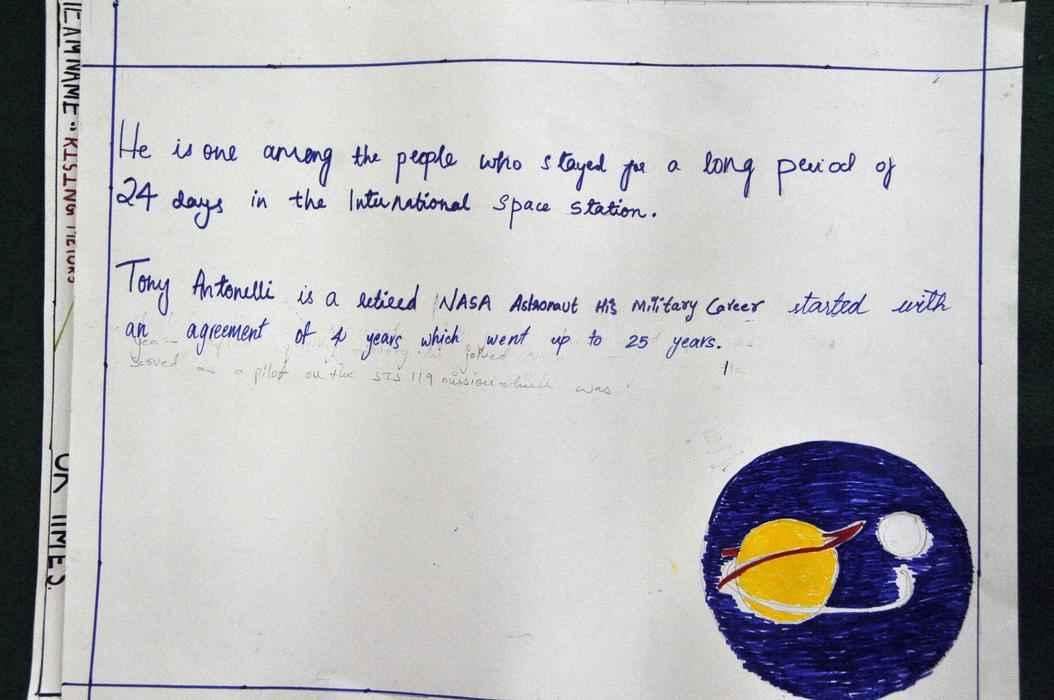 TEAM NAME :- RISING METEORS
He is one among the people who stayed for a long period of
24 days in the International Space Station.
Tony Antonelli is a retired NASA Astronaut His Military Career started with
an agreement of 4 years which went up to 25 years.
joined
served as a pilot on the STS 119 mission which was
OR TIMES.